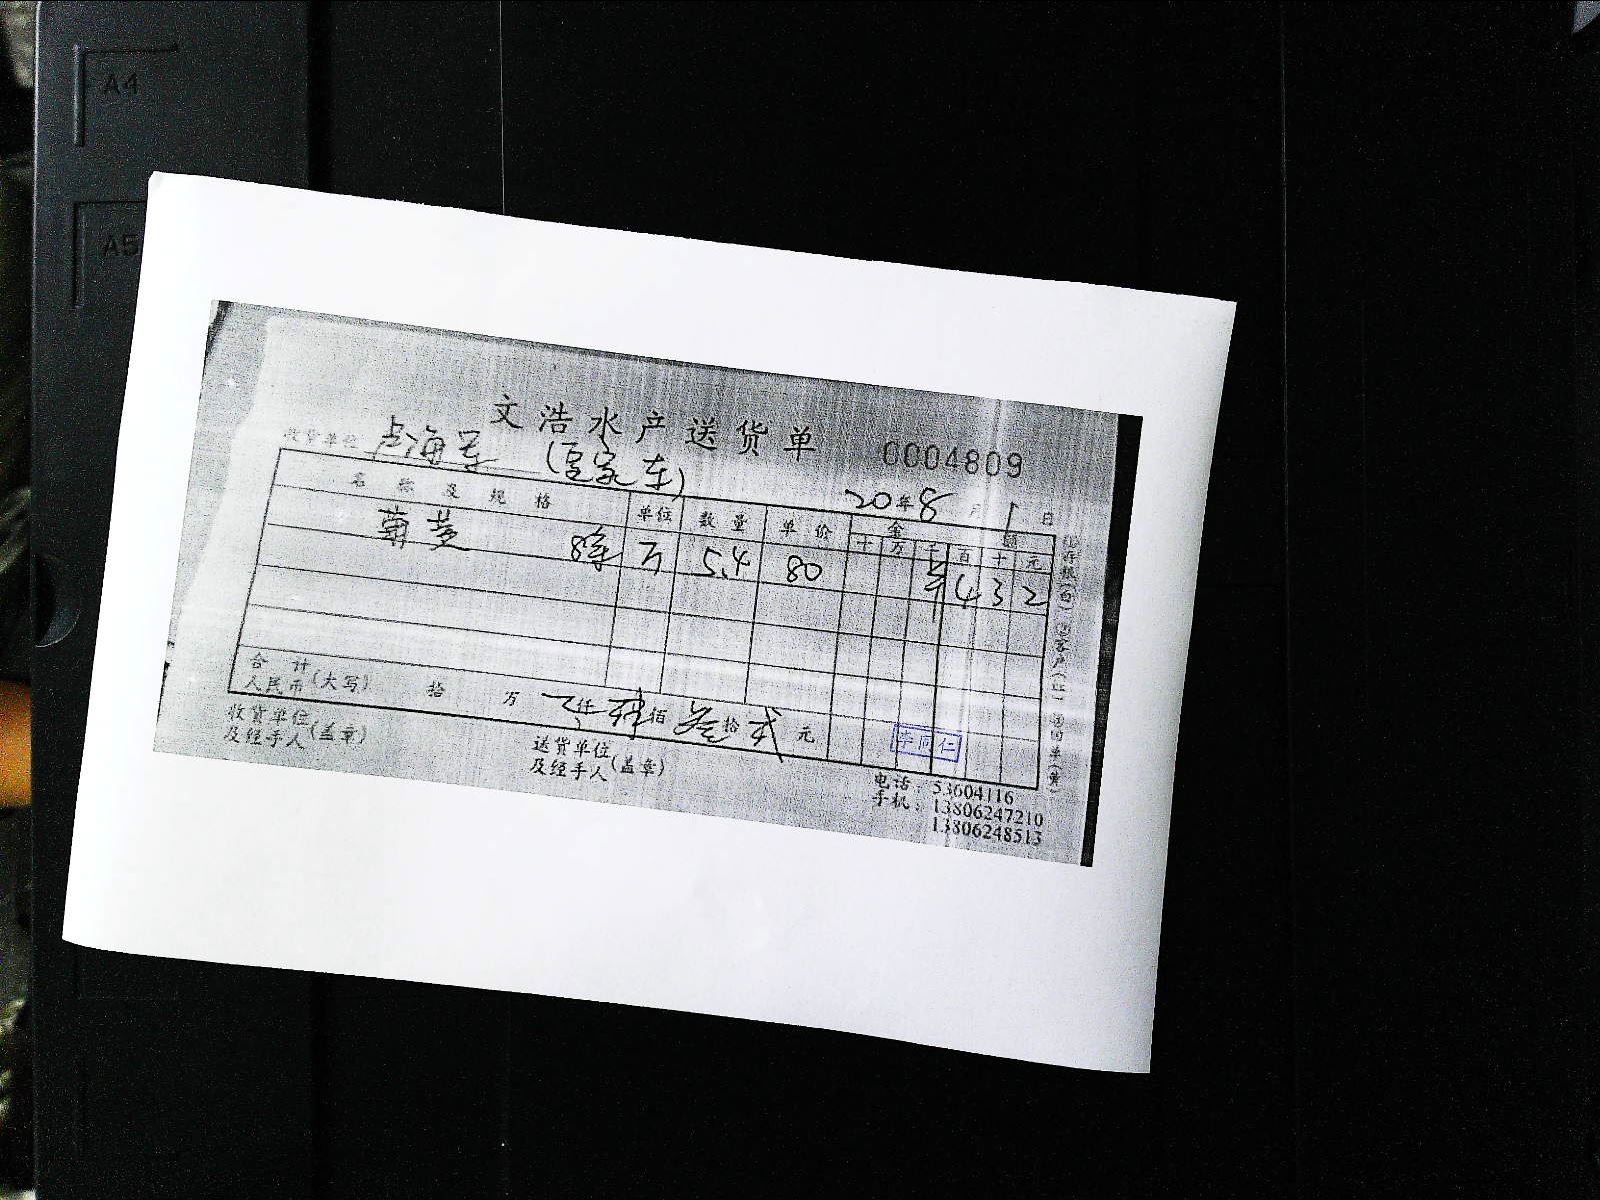 A4
A5
文浩水产送货单
0004809
收货单位 卢海军
20年8月1日
名称及规格 单位 数量 单价 金额
十 万 千 百 十 元
5.4 80 4 3 2
合计
人民币(大写) 拾 万 仟 肆佰 叁拾 贰 元
收货单位
及经手人(盖章)
送货单位
及经手人(盖章)
电话: 53604116
手机: 13806247210
13806248513